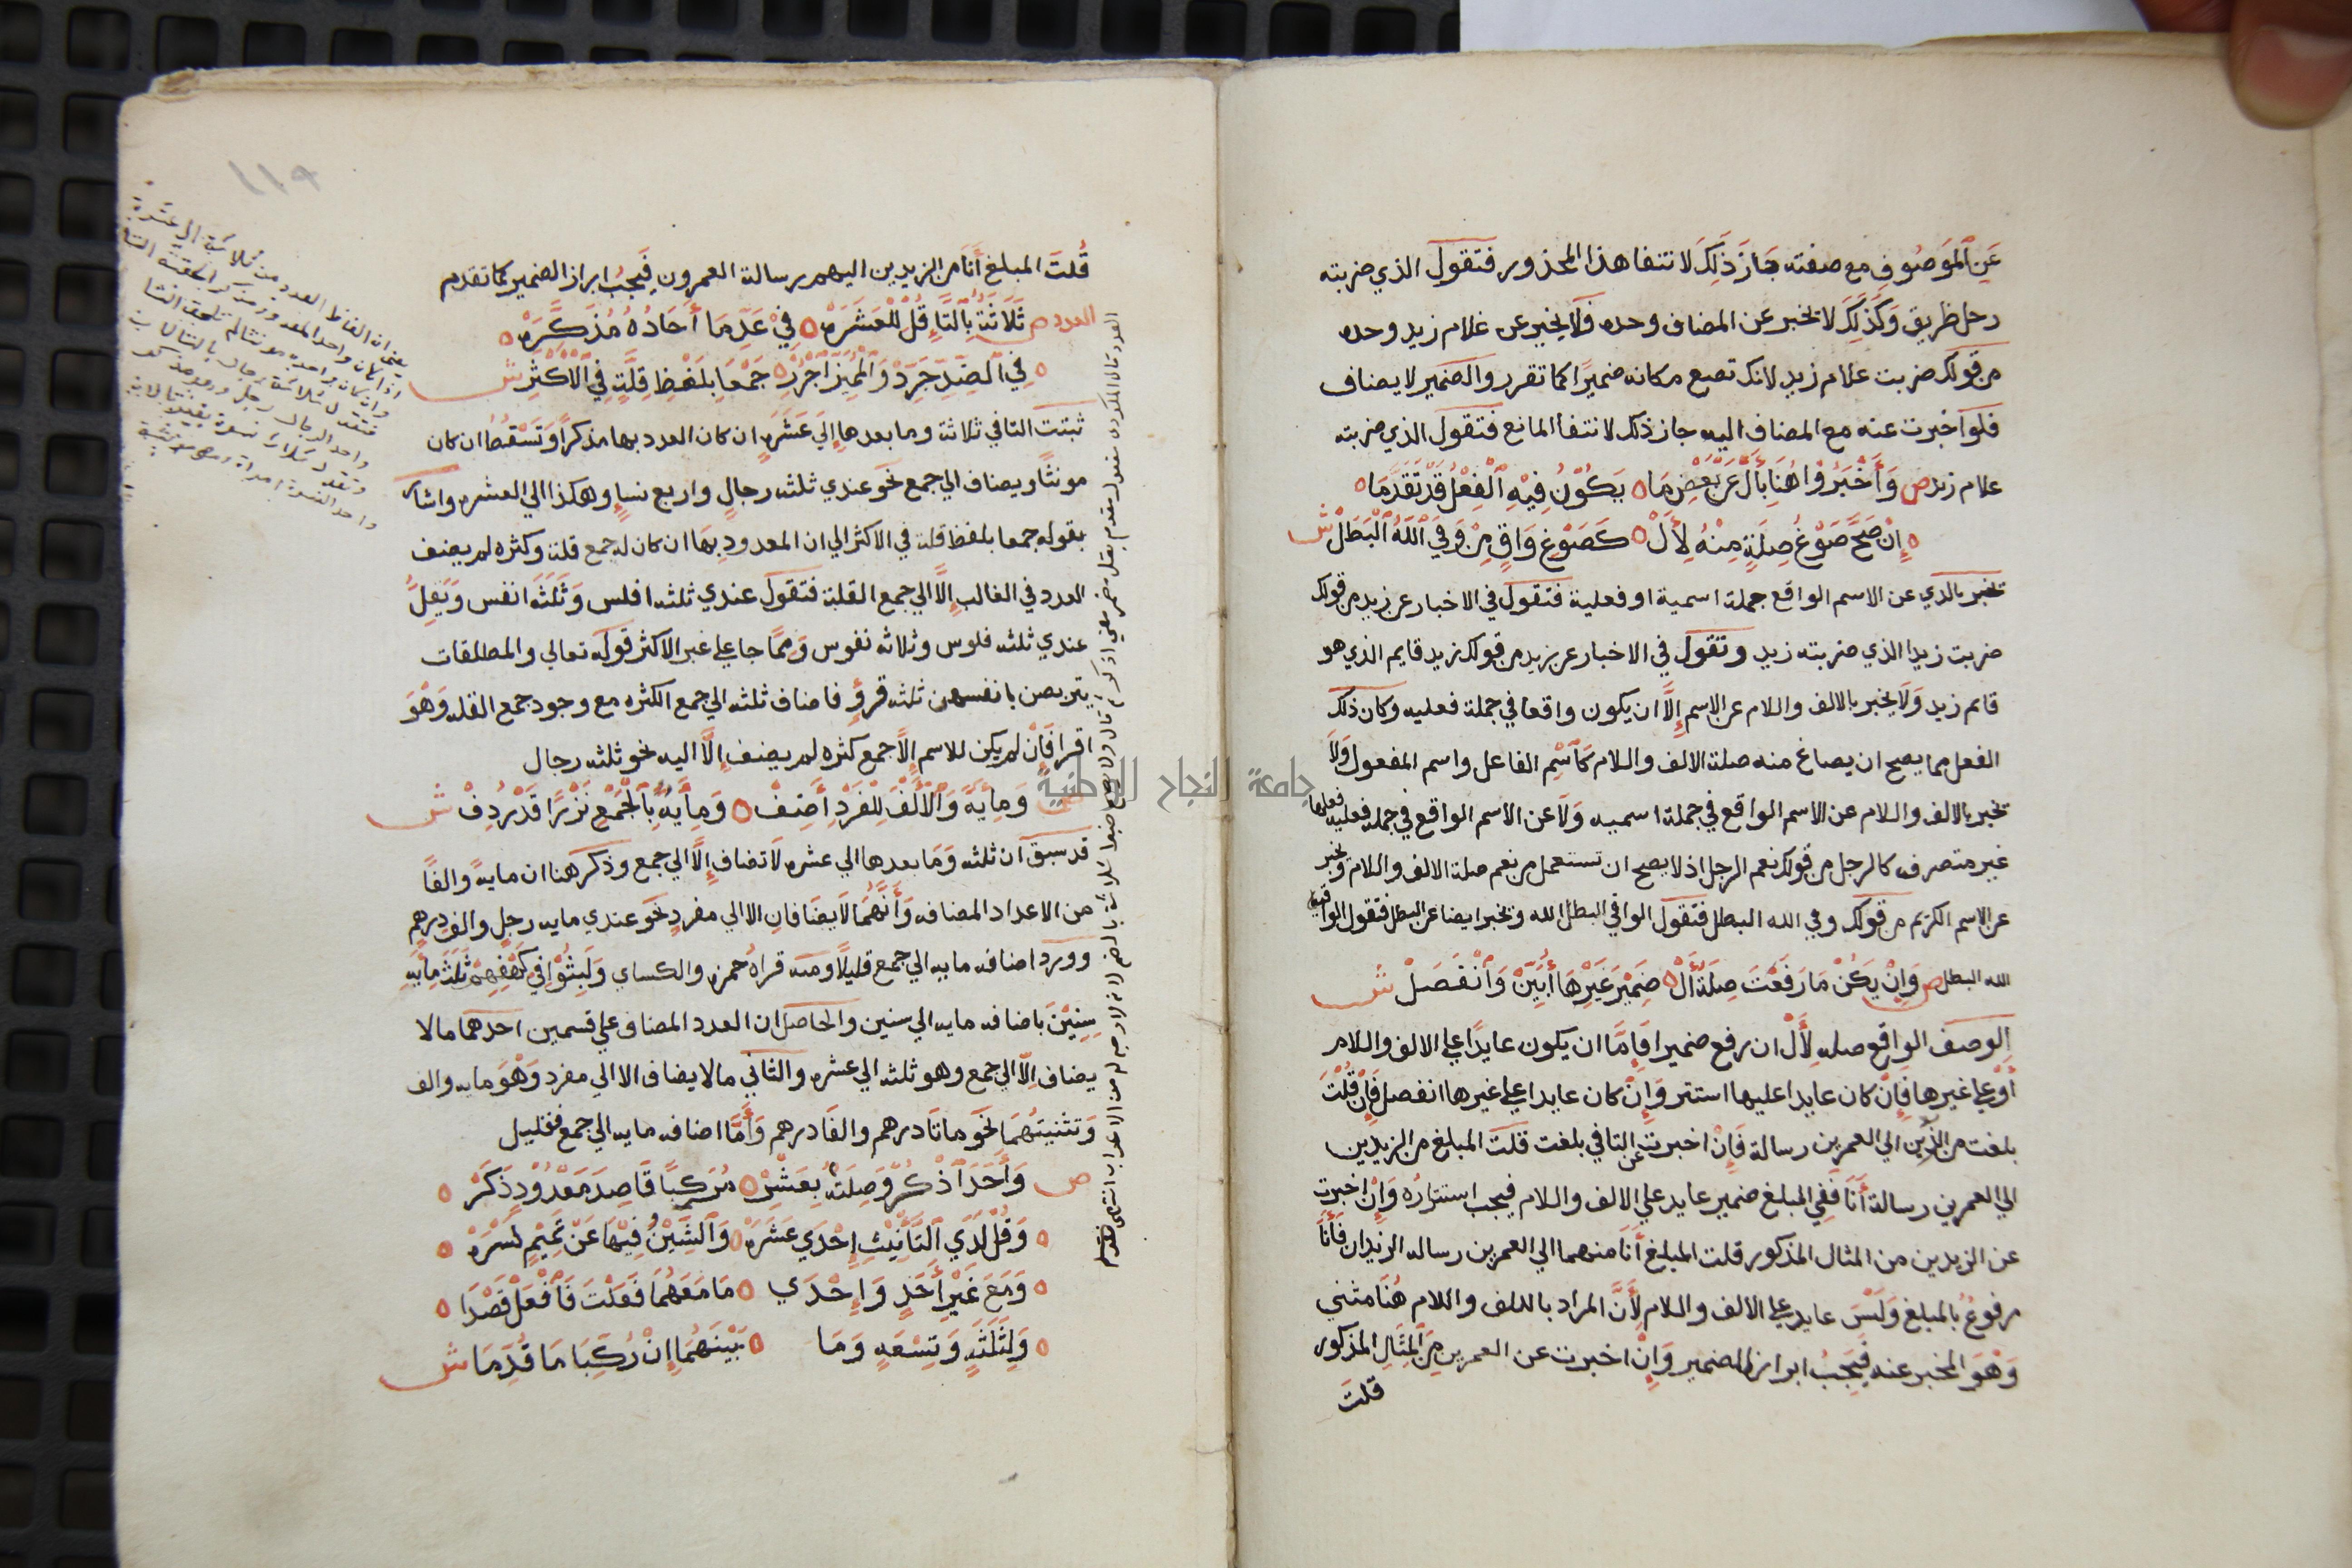 عَنِ ٱلْمَوصُوفِ مع صفته جَازَ ذَلِكَ لانتفا هذا المحذور فتقول الذي ضربته
رجل ظريق وَكَذَلِكَ لا يخبر عن المضاف وحده فَلَا يخبر عن غلام زيد وحده
من قولك ضربت غلام زيد لانك تضع مكانه ضميرًا كما تقرر والضمير لا يضاف
فلو اخبرت عنه مع المضاف اليه جاز ذلك لانتفا المانع فتقول الذي ضربته
غلام زيد ص وَأَخْبَرُوا هُنَا بِأَلْ عَنْ بَعْضِ مَا يَكُوْنُ فِيْهِ ٱلْفِعْلُ قَدْ تَقَدَّمَا
إِنْ صَحَّ صَوْغُ صِلَةٍ مِنْهُ لِأَلْ كَصَوْغِ وَاقٍ مِنْ وَقَى ٱللَّهُ ٱلْبَطَلْ ش
تخبر بالذي عن الاسم الواقع جملة اسمية او فعلية فتقول في الاخبار عن زيد من قولك
ضربت زيدا الذي ضربته زيد وتقول في الاخبار عن زيد من قولك زيد قايم الذي هو
قايم زيد وَلَا يخبر بالالف واللام عن الاسم إِلَّا ان يكون واقعا في جملة فعليه وكان ذلك
الفعل مما يصح ان يصاغ منه صلة الالف واللام كَٱسْمِ الفاعل واسم المفعول وَلَا
تخبر بالالف واللام عن الاسم الواقع في جملة اسميه وَلَا عن الاسم الواقع في جمله فعليه فعلها
غير متصرف كالرجل من قولك نعم الرجل اذ لا يصح ان تستعمل من نعم صلة الالف واللام وتخبر
عن الاسم الكريم من قولك وقي الله البطل فتقول الواقي البطل الله وتخبر ايضا عن البطل فتقول الواقيه
الله البطل ص وَإِنْ يَكُنْ مَا رَفَعَتْ صِلَةُ أَلْ ضَمِيْرَ غَيْرِهَا أُبِيْنَ وَٱنْفَصَلْ ش
الوصف الواقع صله لِأَلْ ان رفع ضميرا فَإِمَّا ان يكون عايدًا علي الالف واللام
أَوْ علي غيرها فَإِنْ كان عايدا عليها استتر وَإِنْ كان عايدا علي غيرها انفصل فَإِنْ قُلْتَ
بلغت من الزيدين الي العمرين رسالة فَإِنْ اخبرت عن التا في بلغت قلت المبلغ من الزيدين
الي العمرين رسالة أَنَا فَفِي المبلغ ضمير عايد علي الالف واللام فيجب استتارُه وَإِنْ اخبرت
عن الزيدين من المثال المذكور قلت المبلغ أَنَا منهما الي العمرين رساله الزيدان فَأَنَا
مرفوعُ بالمبلغ وَلَيْسَ عايد علي الالف واللام لِأَنَّ المراد بالالف واللام هُنَا مثني
وَهْوَ المخبر عنه فَيَجِبُ ابراز الضمير وَإِنْ اخبرت عن العمرين مِنَ ٱلْمِثَالِ المذكور
قلتَ
١١٩
قُلتَ المبلغ أَنَا من الزيدين اليهم رسالة العمرون فَيَجِبُ ابراز الضمير كما تقدم
العدد ص ثَلَاثَةً بِٱلتَّاءِ قُلْ لِلْعَشَرَهْ فِيْ عَدِّ مَا أَحَادُهُ مُذَكَّرَهْ
فِي ٱلضِّدِّ جَرِّدْ وَٱلْمُمَيِّزَ ٱجْرُرِ جَمْعًا بِلَفْظِ قِلَّةٍ فِي ٱلْأَكْثَرِ ش
ثبتت التا في ثلاثة وما بعدها إِلَى عَشَرَةٍ ان كان العدد بها مذكرًا وَتَسْقُطُ ان كان
مونثًا ويضاف الي جمع نَحْوَ عندي ثلثه رجالٍ واربع نساٍ وهكذا الي العشره واشار
بقوله جمعا بلفظ قلة في الاكثر الي ان المعدود بِهَا ان كان له جمع قلة وكثره لم يضف
العدد في الغالب إِلَّا الي جمع القلة فتقول عندي ثلثه افلس وَثَلَثَه انفس وَيَقِلُّ
عندي ثلثه فلوس وثلاثه نفوس وَمِمَّا جا علي غير الاكثر قوله تعالي والمطلقات
يتربصن بانفسهن ثلثه قرؤٍ فاضاف ثلثه الي جمع الكثره مع وجود جمع القله وَهْوَ
اقرا فَإِنْ لم يكن للاسم إِلَّا جمع كثره لم يضف إِلَّا اليه نحو ثلثه رجال
ص وَمِائَةً وَٱلْأَلْفَ لِلْفَرْدِ أَضِفْ وَمِايَةٌ بِٱلْجَمْعِ نَزْرًا قَدْ رُدِفْ ش
قد سبق ان ثلثه وَمَا بعدها الي عشره لَا تضاف إِلَّا الي جمع وذكر هنا ان مايهً والفًا
من الاعداد المضافه وَأَنَّهُمَا لَا يضَافانِ الا الي مفردٍ نَحْوَ عندي مايه رجلٍ والف درهم
وورد اضافه مايه الي جمع قليلًا ومنه قراةُ حمزه والكساي وَلَبِثُوْا فِي كَهْفِهِمْ ثَلَثَ مِايَةِ
سِنِيْنَ باضافه مايه الي سنين والحاصل ان العدد المضاف علي قسمين احدهما ما لا
يضاف إِلَّا الي جمع وهو ثلثه الي عشره والثاني ما لا يضاف الا الي مفرد وَهْوَ مايه والف
وَتثنيتُهُمَا نَحْوَ ماتَا درهم والفَا درهم وَأَمَّا اضافه مايه الي جمع فقليل
ص وَأَحَدَ ٱذْكُرْ وَصِلَنْهُ بِعَشَرْ مُرَكِّبًا قَاصِدَ مَعْدُوْدٍ ذَكَرْ
وَقُلْ لَدَي ٱلتَّأْنِيْثِ إِحْدَي عَشَرَهْ وَٱلشِّيْنُ فِيْهَا عَنْ تَمِيْمٍ كَسْرَهْ
وَمَعَ غَيْرِ أَحَدٍ وَإِحْدَي مَا مَعَهُمَا فَعَلْتَ فَٱفْعَلْ قَصْدَا
وَلِثَلَثَةٍ وَتِسْعَةٍ وَمَا بَيْنَهُمَا إِنْ رُكِّبَا مَا قُدِّمَا ش
جامعة النجاح الوطنية